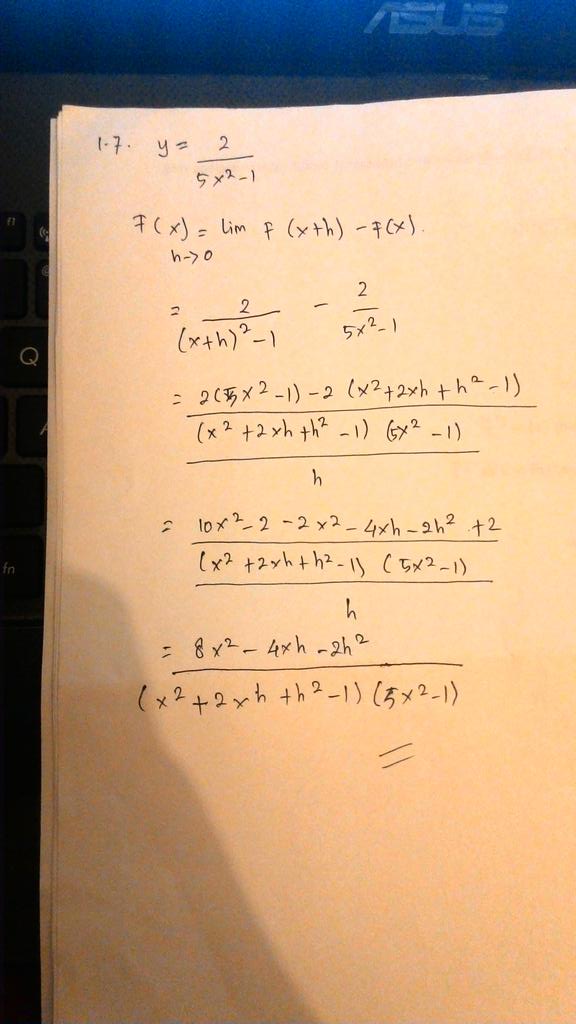 ASUS
1.7. y = 2
5x²-1
F(x) = lim F (x+h) - F(x).
h->0
= 2 - 2
(x+h)²-1 5x²-1
= 2(5x²-1) - 2 (x²+2xh+h²-1)
(x²+2xh+h²-1) (5x²-1)
h
= 10x²-2-2x²-4xh-2h²+2
(x²+2xh+h²-1) (5x²-1)
h
= 8x²-4xh-2h²
(x²+2xh+h²-1) (5x²-1)
f1
Q
A
fn